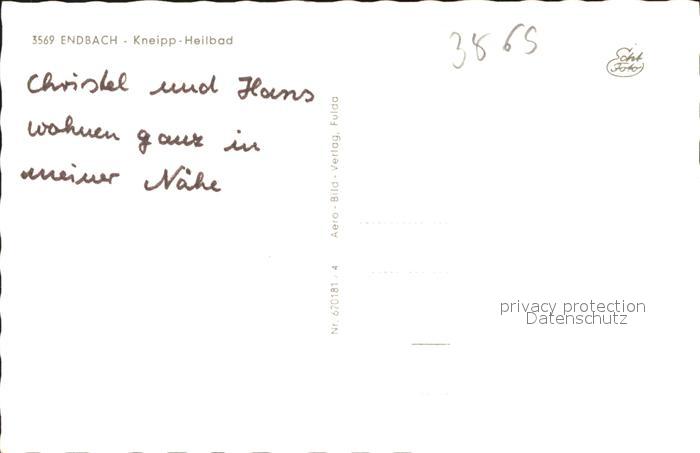 3569 ENDBACH - Kneipp-Heilbad
3865
Echt
Foto
Christel und Hans
wohnen ganz in
meiner Nähe
Nr. 670181 / 4 Aero - Bild - Verlag, Fulda
privacy protection
Datenschutz